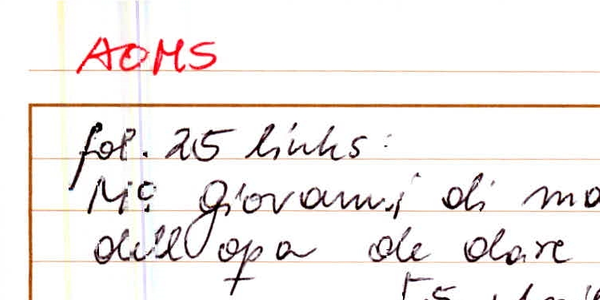 AOMS
fol. 25 links:
Mº giovanni di ma
dell opa de dare